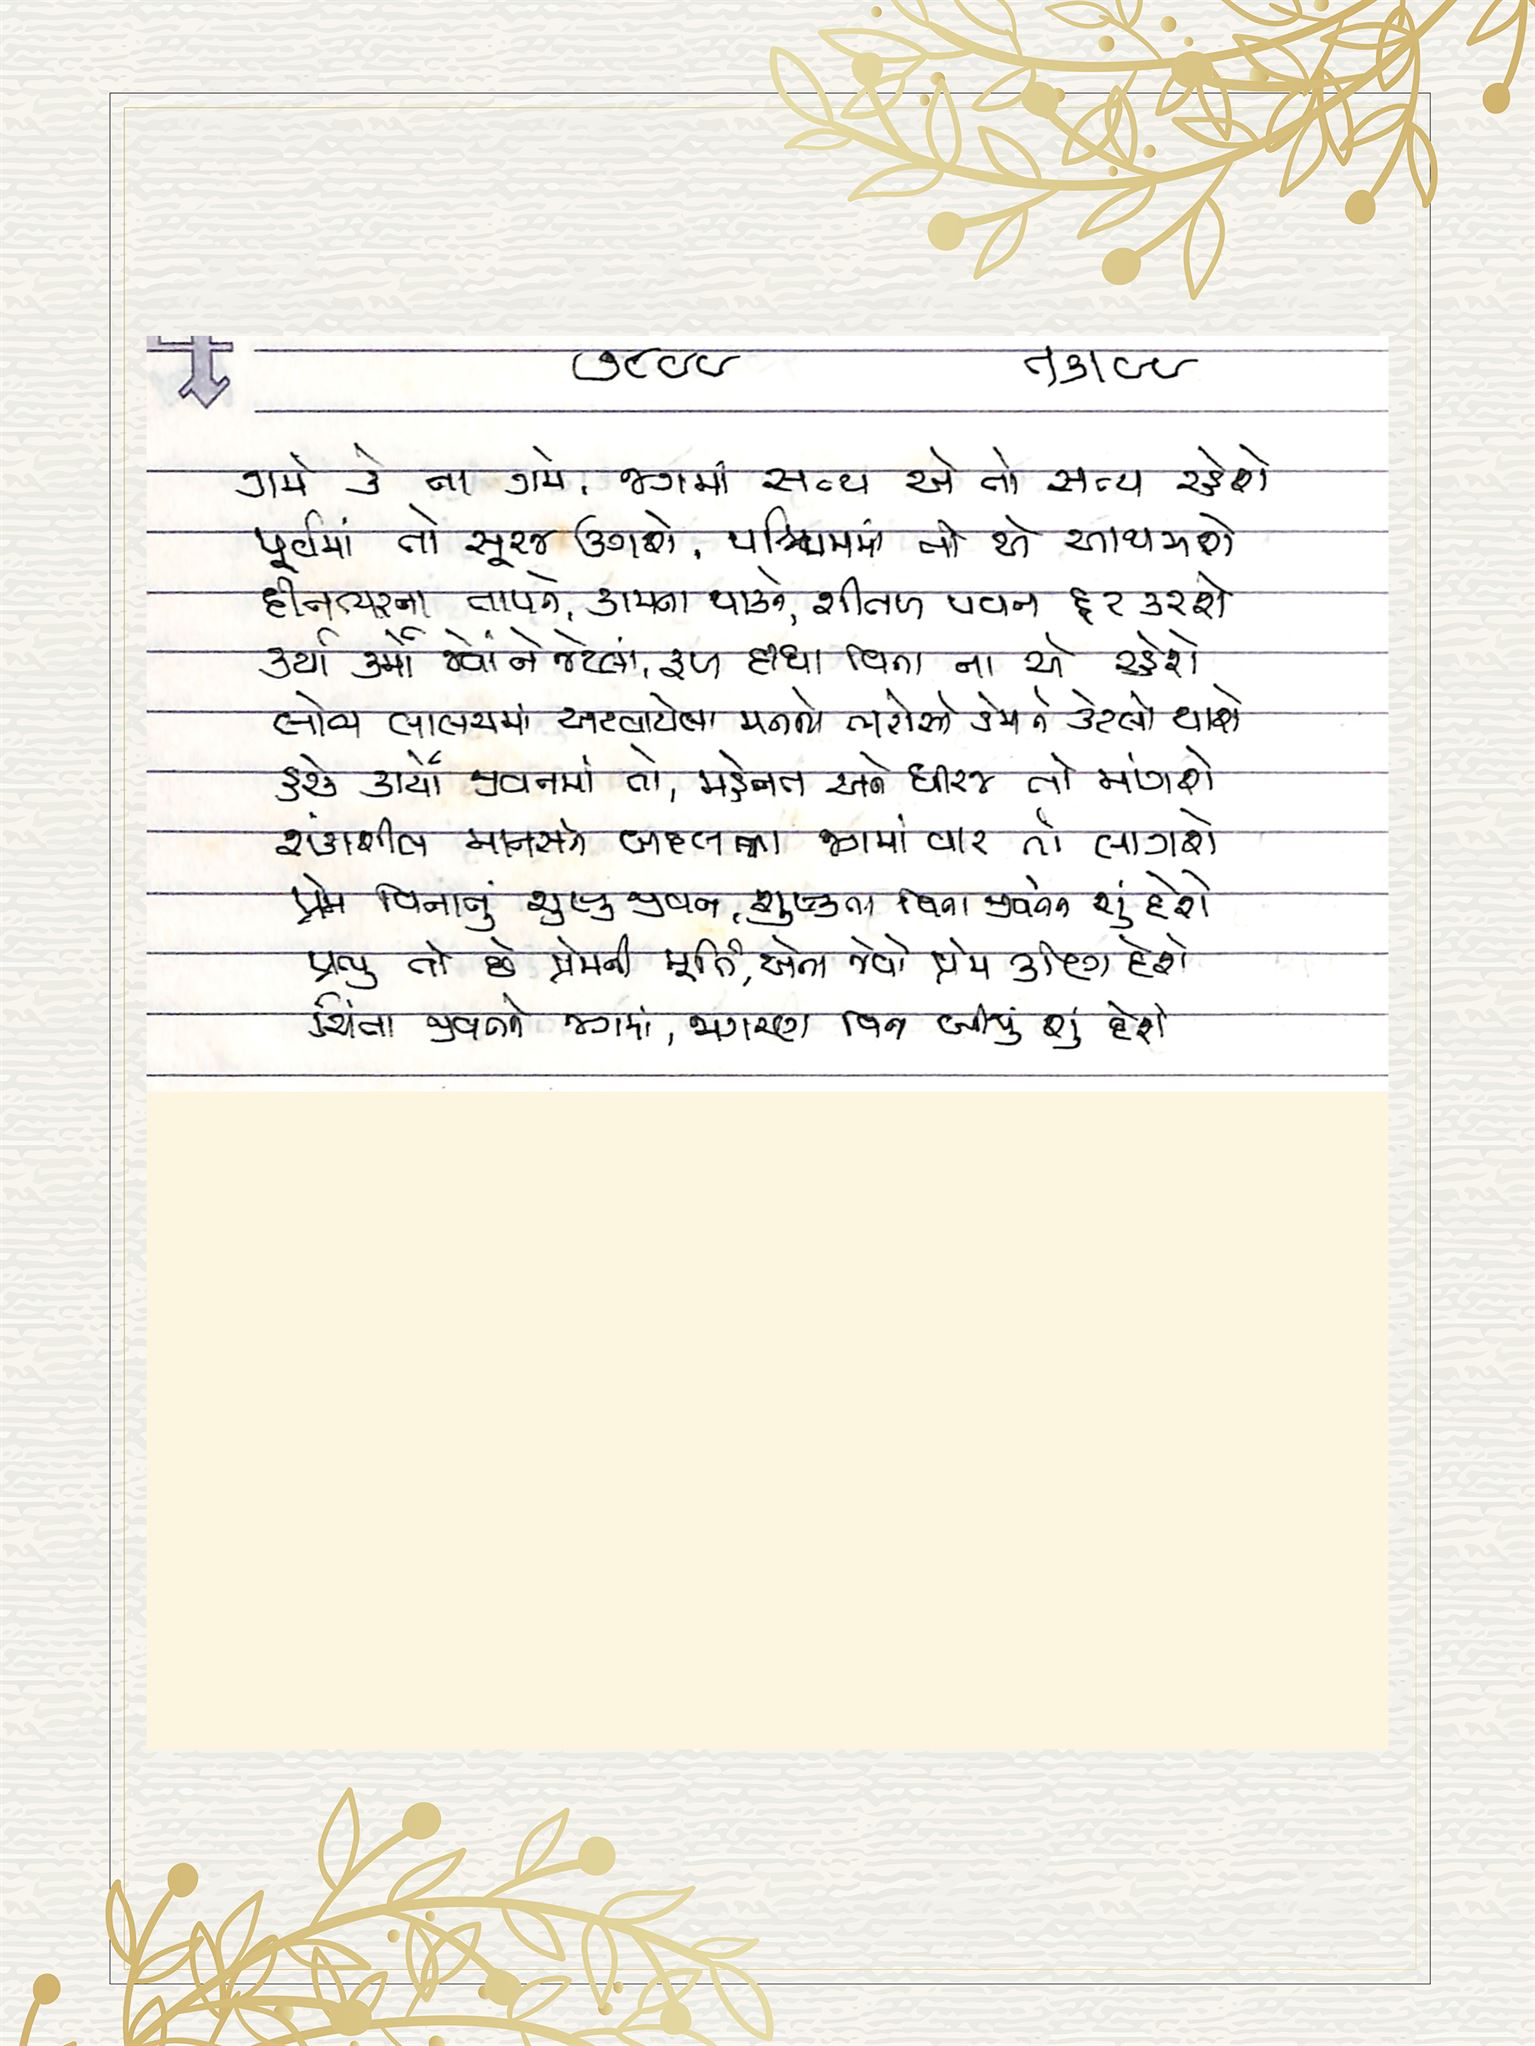 ગમે કે ના ગમે, જગમાં સત્ય એ તો સત્ય રહેશે
પૂર્વમાં તો સૂરજ ઉગશે, પશ્ચિમમાં તો એ આથમશે
દીનભરના તાપને, કામના થાકને, શીતળ પવન દૂર કરશે
કર્યા કર્મો જેવાં ને જેટલાં, ફળ દીધા વિના ના એ રહેશે
લોભ લાલચમાં અટવાયેલા મનનો ભરોસો કેમ ને કેટલો થાશે
હરેક કાર્યો જીવનમાં તો, મહેનત અને ધીરજ તો માંગશે
શંકાશીલ માનસને બદલતા જગમાં વાર તો લાગશે
પ્રેમ વિનાનું શુષ્ક જીવન, શુષ્કતા વિના જીવનને શું દેશે
પ્રભુ તો છે પ્રેમની મૂર્તિ, એના જેવો પ્રેમ કોણ દેશે
ચિંતા જીવનને જગમાં, જાગરણ વિના બીજું શું દેશે